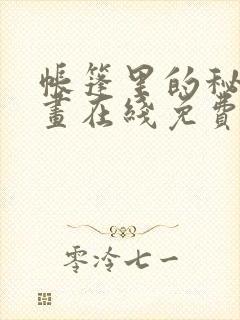 帐篷里的秘
画在线免费
零冷七一